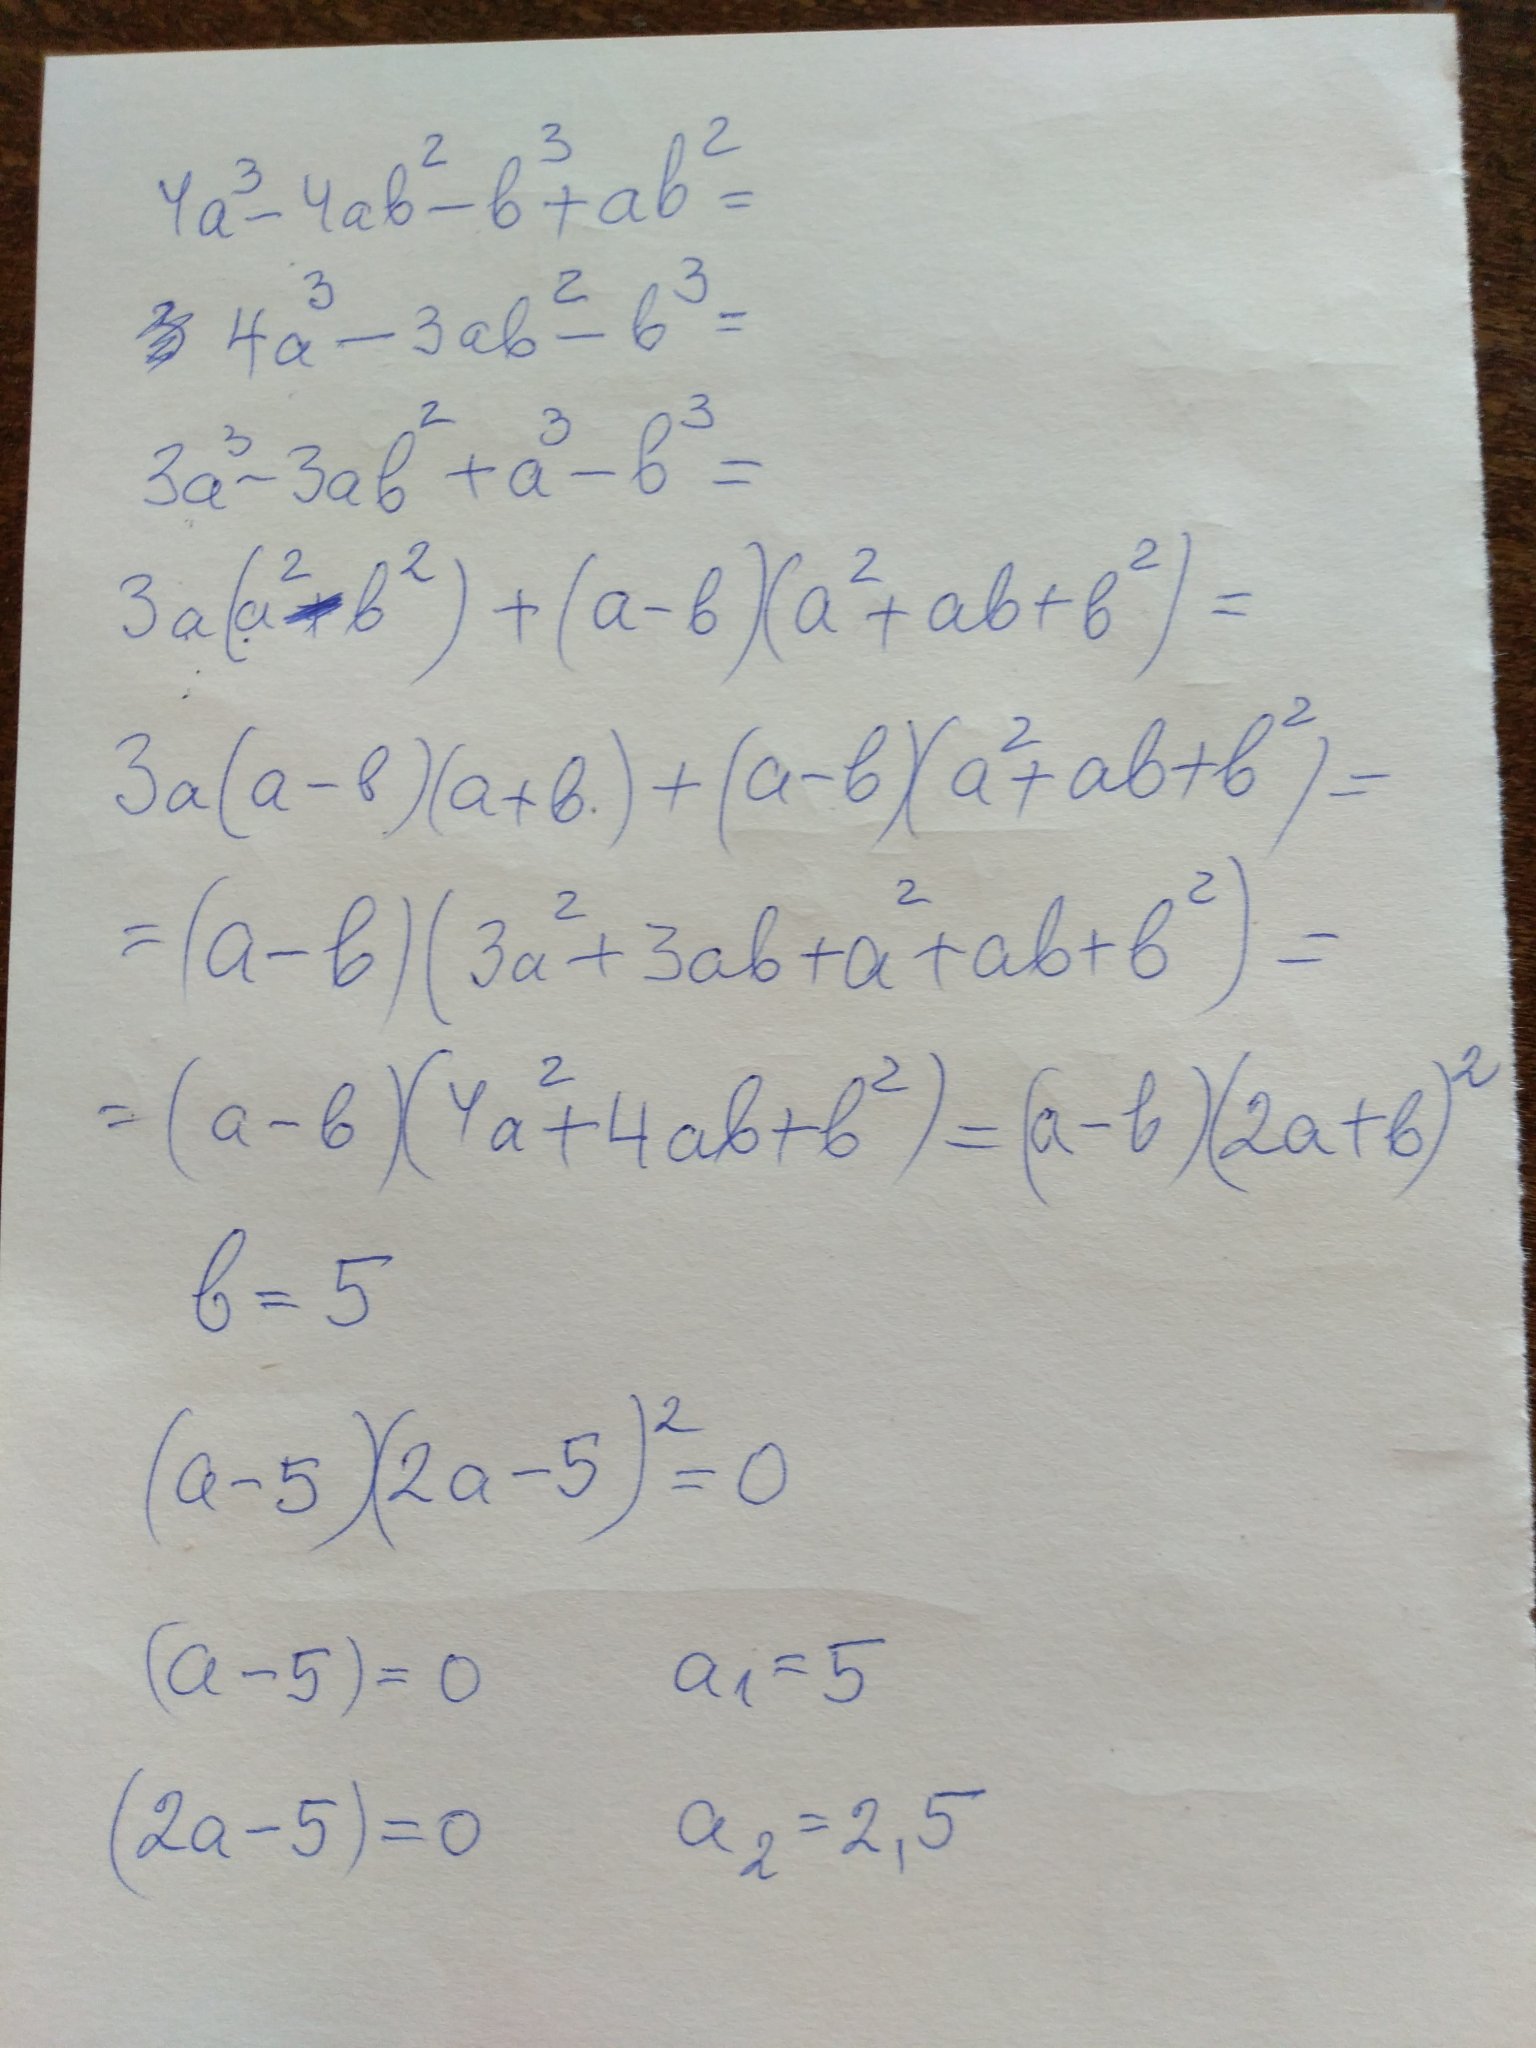 4a³-4ab²-b³+ab²=
4a³-3ab²-b³=
3a³-3ab²+a³-b³=
3a(a²-b²)+(a-b)(a²+ab+b²)=
3a(a-b)(a+b)+(a-b)(a²+ab+b²)=
=(a-b)(3a²+3ab+a²+ab+b²)=
=(a-b)(4a²+4ab+b²)=(a-b)(2a+b)²
b=5
(a-5)(2a-5)²=0
(a-5)=0 a₁=5
(2a-5)=0 a₂=2,5